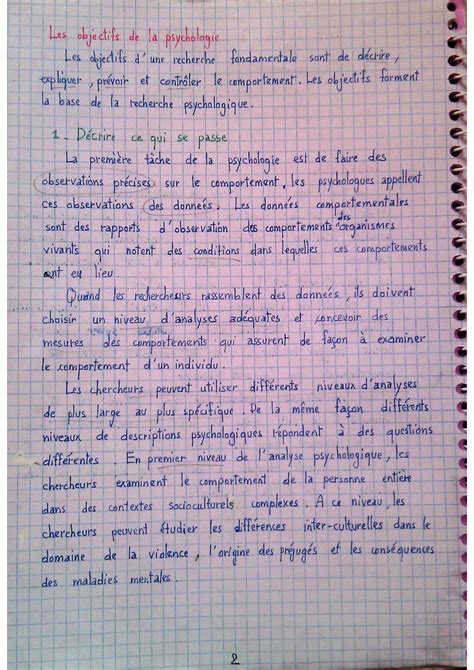 Les objectifs de la psychologie
Les objectifs d'une recherche fondamentale sont de décrire,
expliquer, prévoir et contrôler le comportement. Les objectifs forment
la base de la recherche psychologique.
1_ Décrire ce qui se passe
La première tâche de la psychologie est de faire des
observations précises sur le comportement, les psychologues appellent
ces observations des données. Les données comportementales
sont des rapports d'observation des comportements des organismes
vivants qui notent des conditions dans lequelles ces comportements
ont eu lieu.
Quand les rechercheurs rassemblent des données, ils doivent
choisir un niveau d'analyses adéquates et concevoir des
mesures des comportements qui assurent de façon à examiner
le comportement d'un individu.
Les chercheurs peuvent utiliser différents niveaux d'analyses
de plus large au plus spécifique. De la même façon différents
niveaux de descriptions psychologiques répondent à des questions
différentes. En premier niveau de l'analyse psychologique, les
chercheurs examinent le comportement de la personne entière
dans des contextes socioculturels complexes. A ce niveau, les
chercheurs peuvent étudier les différences inter-culturelles dans le
domaine de la violence, l'origine des préjugés et les conséquences
des maladies mentales.
2